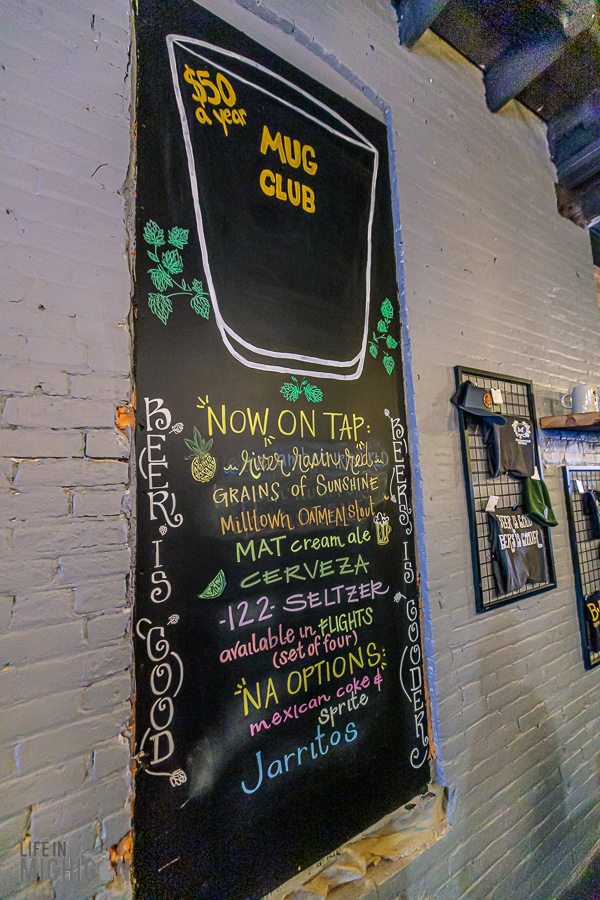 $50
a year
MUG
CLUB
BEER IS GOOD
NOW ON TAP:
river raisin red
GRAINS of SUNSHINE
Milltown OATMEAL stout
MAT cream ale
CERVEZA
-122- SELTZER
available in FLIGHTS
(set of four)
"NA OPTIONS:"
mexican coke &
sprite
Jarritos
BEERS IS GOODER
BEER IS GOOD
BEERS IS GOODER
LIFE IN
MICHIGAN